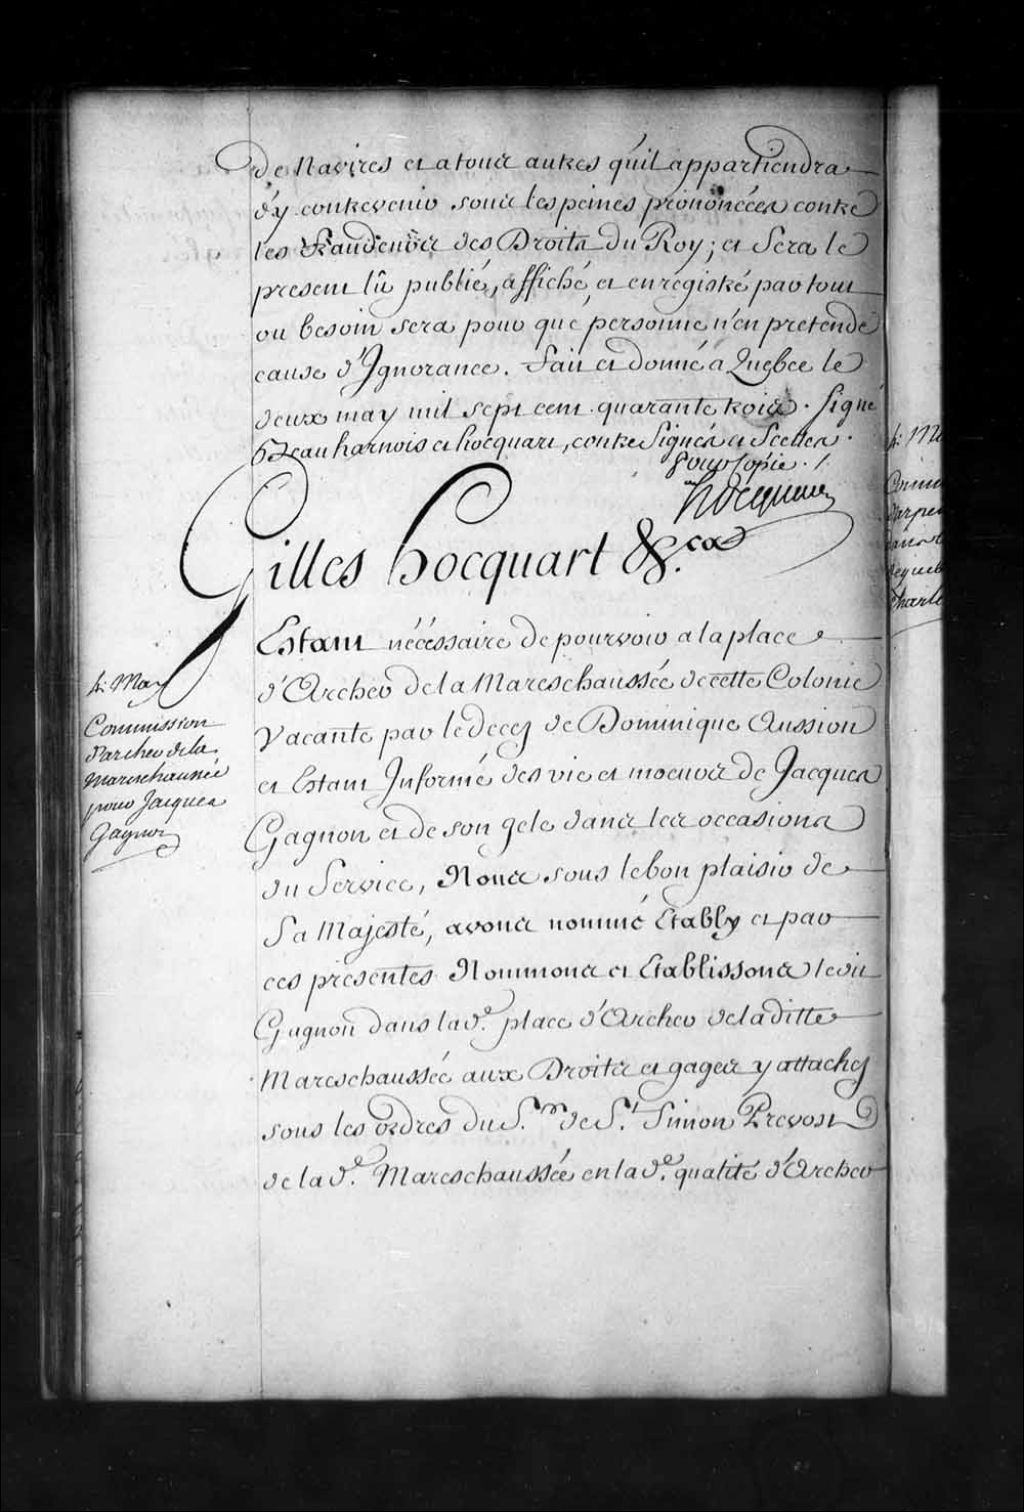 de Navires et a tous autres qu'il appartiendra
d'y contrevenir sous les peines prononcées contre
les fraudeurs des Droits du Roy; et Sera le
present lû publié, affiché, et enregistré par tout
ou besoin sera pour que personne n'en pretende
cause d'Ignorance. Fait et donné a Quebec le
deux may mil sept cent quarante trois. Signé
Beauharnois et hocquart, contreSignés et Scellés.
Pour Copie ./.
hocquart
Gilles hocquart &.ca
Estant nécéssaire de pourvoir a la place
d'Archer de la Mareschaussée de cette Colonie
Vacante par le deces de Dominique Aussion
et Estant Informé des vie et moeurs de Jacques
Gagnon et de son zele dans les occasions
du Service, Nous sous le bon plaisir de
Sa Majesté, avons nommé Etably et par
ces presentes Nommons et Etablissons led.it
Gagnon dans la d.e place d'Archer de la ditte
Mareschaussée aux Droits et gages y attachés
sous les ordres du S.r de S.t Simon Prevost
de la d.e Mareschaussée en la d.e qualité d'Archer
4: May
Commission
d'archer de la
Mareschaussée
pour Jacques
Gagnon
4: Ma